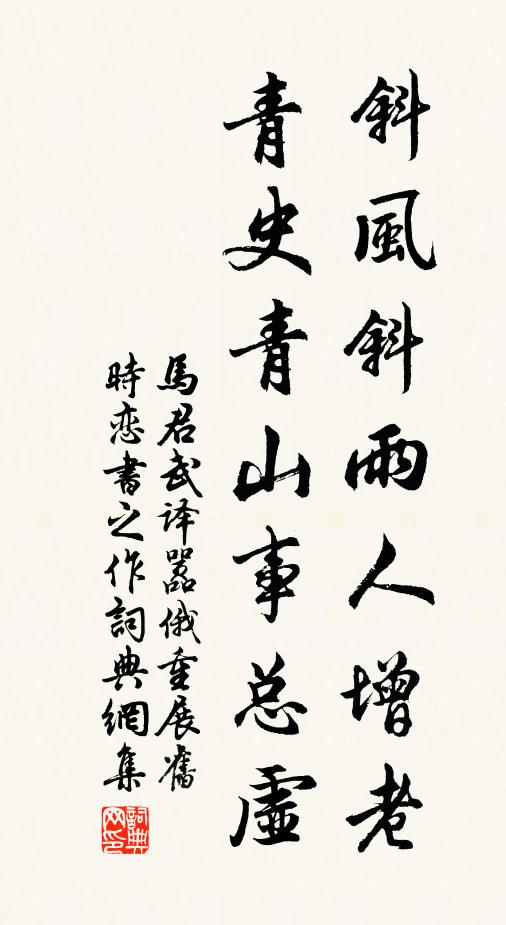 斜風斜雨人增老
青史青山事总虛
馬君武译嚣俄重展舊
時恋書之作詞典網集
詞典网印